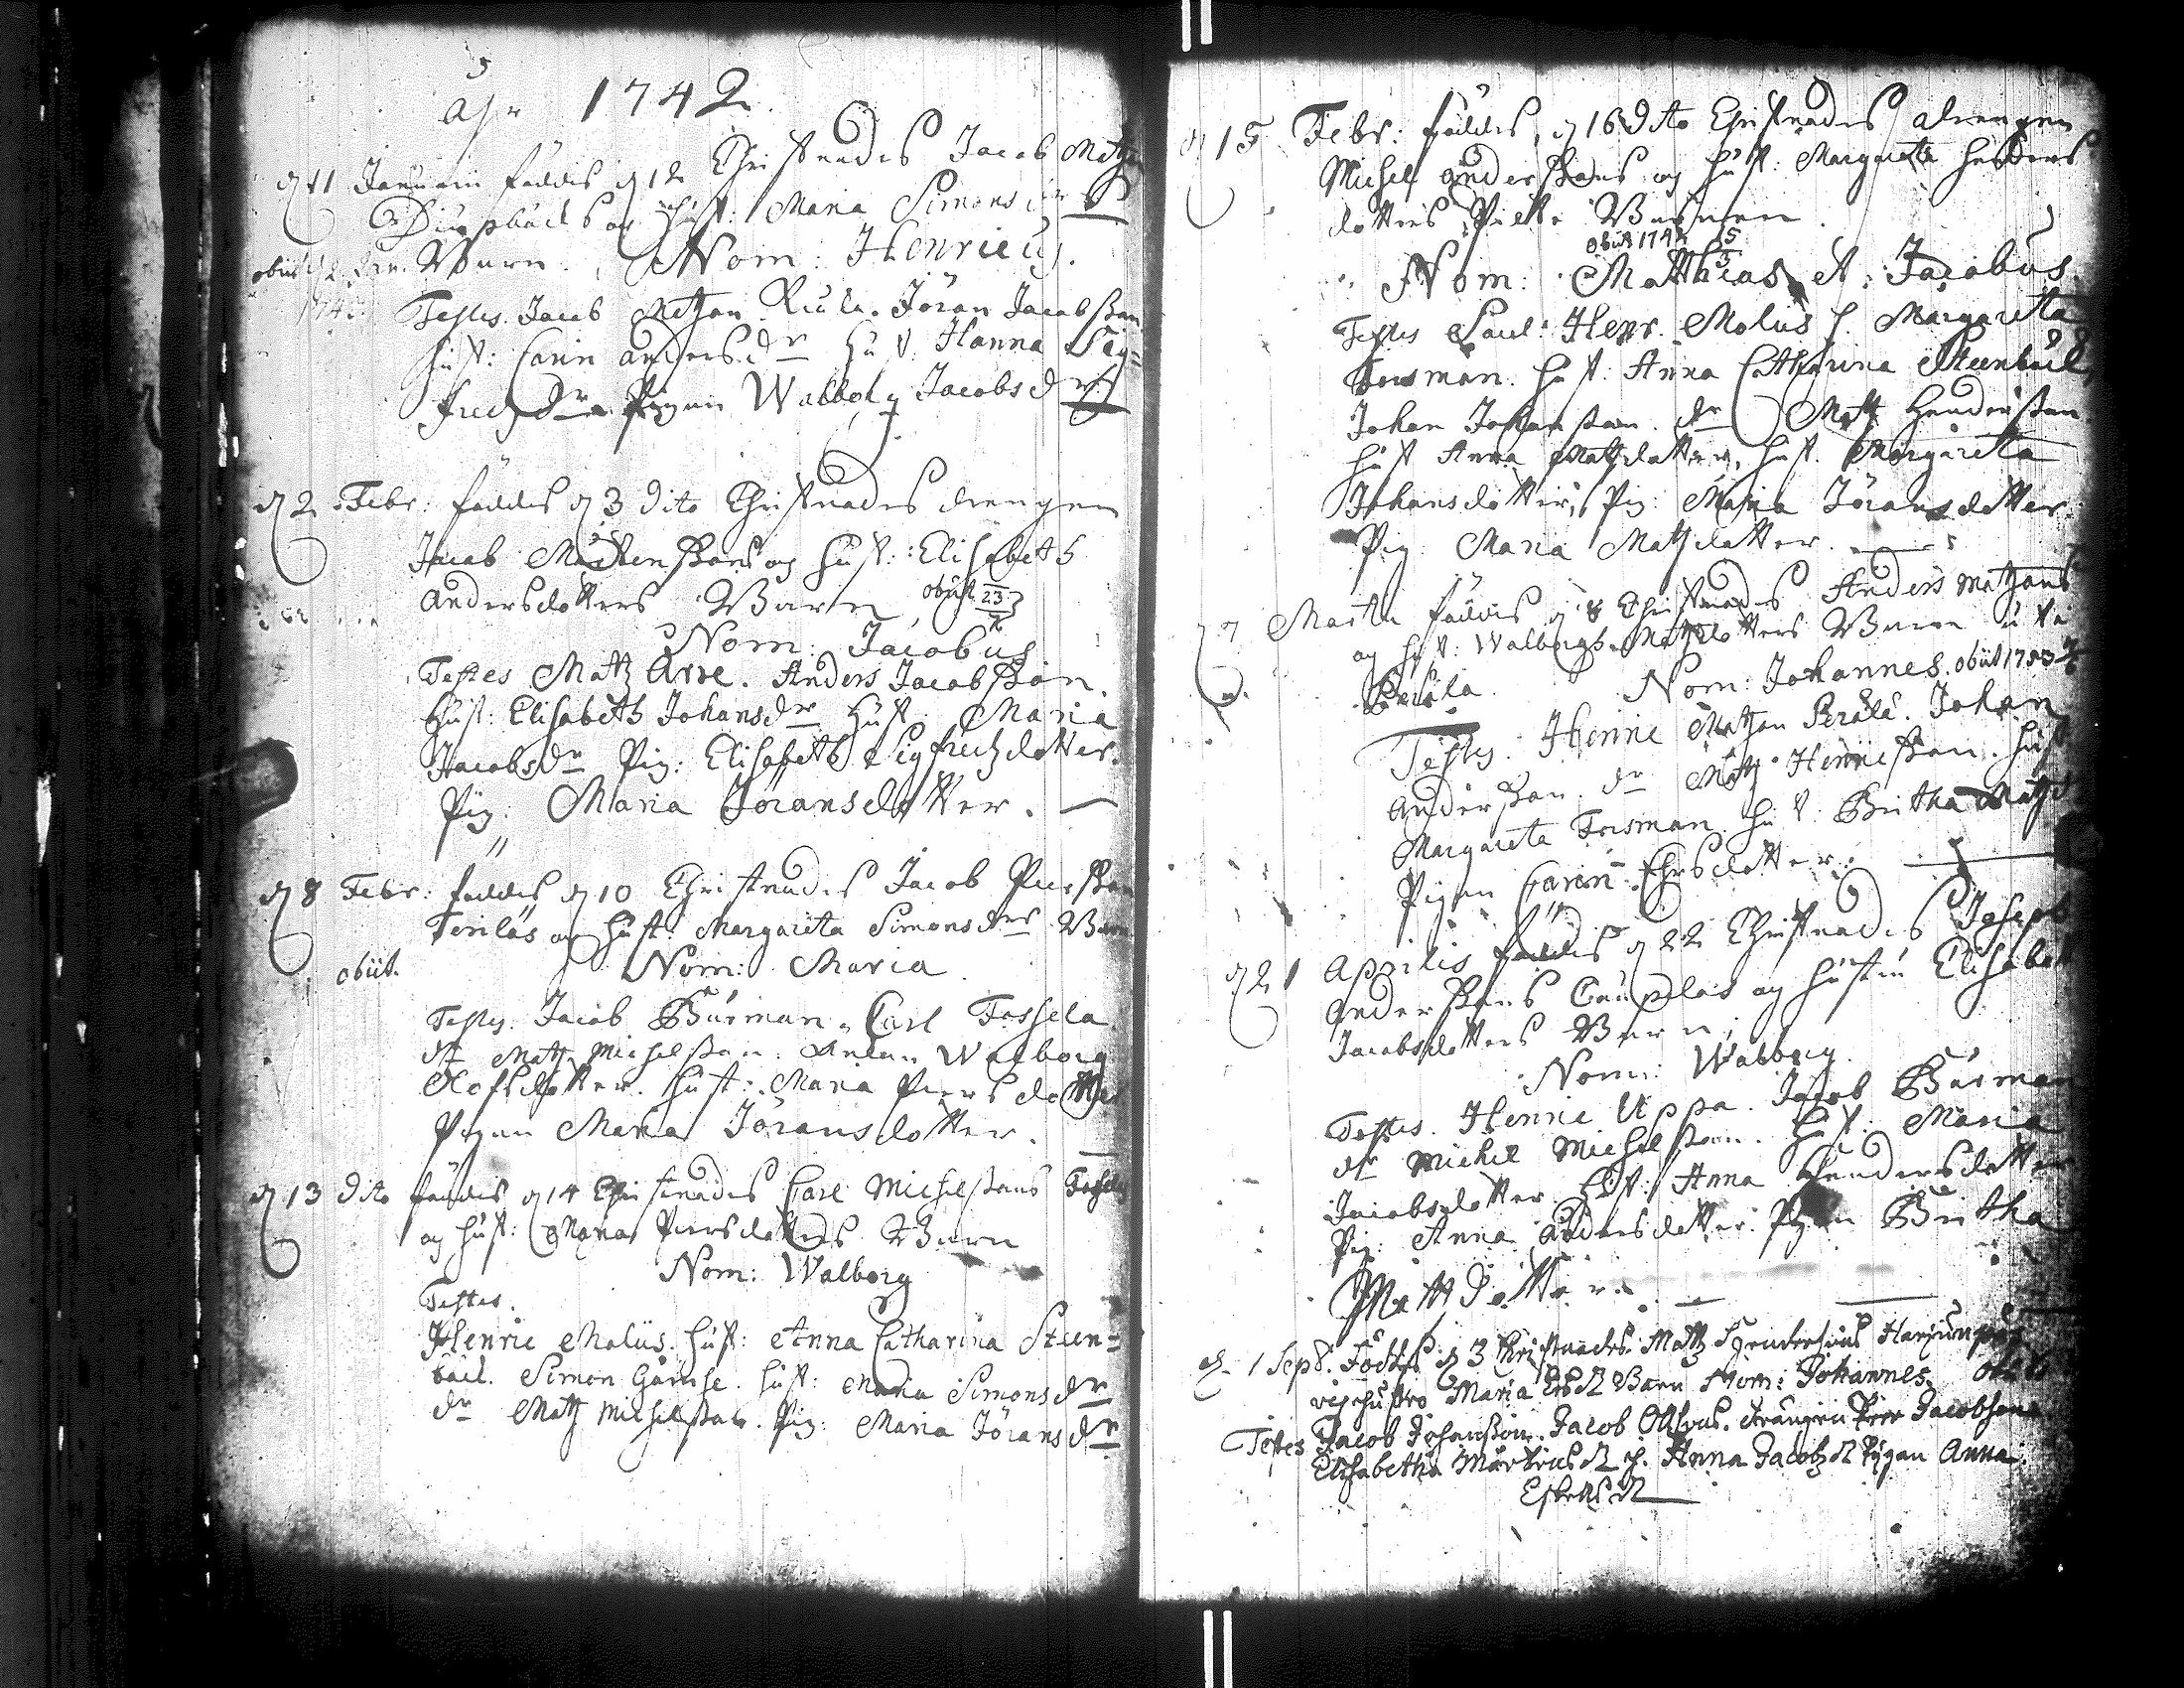 Åhr 1742.
d 11 Januarii föddes d 12 Christnades Jacob Matzon
og hust: Maria Simonsdrs
Barn. Nom: Henricus.
obiit d 2 Jan.
174
Testes. Jacob Matzon Jöran Jacobsson
hust: Carin Andersdr Hust: Hanna Sig=
fredzdr Pigan Walborg Jacobsdr
d 2 Febr: föddes d 3 dito Christnades drengen
Jacob Mårtenssons og hust: Elisabeth
Andersdotters Barn obiit 23
Nom: Jacobus
Testes Matz Arve. Anders Jacobsson.
Hust: Elisabeth Johansdr Hust. Maria
Jacobsdr Pig: Elisabeth Sigfredzdotter.
Pig: Maria Jöransdotter.
d 8 Febr: föddes d 10 Christnades Jacob Persson
og hust: Margareta Simonsdrs Barn
obiit. Nom: Maria
Testes. Jacob Burman, Carl Fossela
dr Matz Michelsson. Walborg
Olofsdotter. Hust: Maria Persdotter
Pigan Maria Jöransdotter.
d 13 dito föddes d 14 Christnades Carl Michelssons Fossela
og hust: Maria Persdotters Barn
Nom: Walborg
Testes.
Henric Molius. hust: Anna Catharina Steen=
bäck. Simon hust: Maria Simonsdr
dr Matz Michelsson. Pig: Maria Jöransdr
d 15 Febr: föddes, d 16 dito Christnades drengen
Michel Anderssons og hust: Margareta
dotters Barnen
obiit 1742 5/5
Nom: Matthias et Jacobus.
Testes Paul: Henr. Molius h. Margareta
Forsman. hust: Anna Catharina Steenbäck,
Johan Johansson. dr Matz Hendersson
hust Anna Matzdotter, hust. Margareta
Johansdotter, Pig: Maria Jöransdotter.
Pig: Maria Matzdotter.
d 7 Martii föddes d 8 Christnades Anders Matzons
og hust: Walborgs Matzdotters Barn
Perala. Nom: Johannes. obiit 1753
Testes. Henric Matzon Perala. Johan
Andersson. dr Matz Henricsson. hust
Margareta Forsman. hust: Britha Matzd
Pigan Carin dotter.
d 21 Aprilis föddes d 22 Christnades Joseph
Anderssons og hustru Elisabet
Jacobsdotters Barn;
Nom: Walborg.
Testes. Henric Uppa. Jacob Burman
dr Michel Michelsson. hust. Maria
Jacobsdotter. Hust: Anna Hendersdotter
Pig: Anna Andersdotter. Pigan Britha
Mattzdotter.
d. 1 Sept. Föddes d 3 Christnades Matz Hendersons Harjunpä
och hustro Maria Barn Nom: Johannes. obiit
Testes Jacob Johansson. Jacob drängen Per Jacobson
Elisabetha Mårtensdr h. Anna Jacobzdr Pigan Anna
Eskelsdr